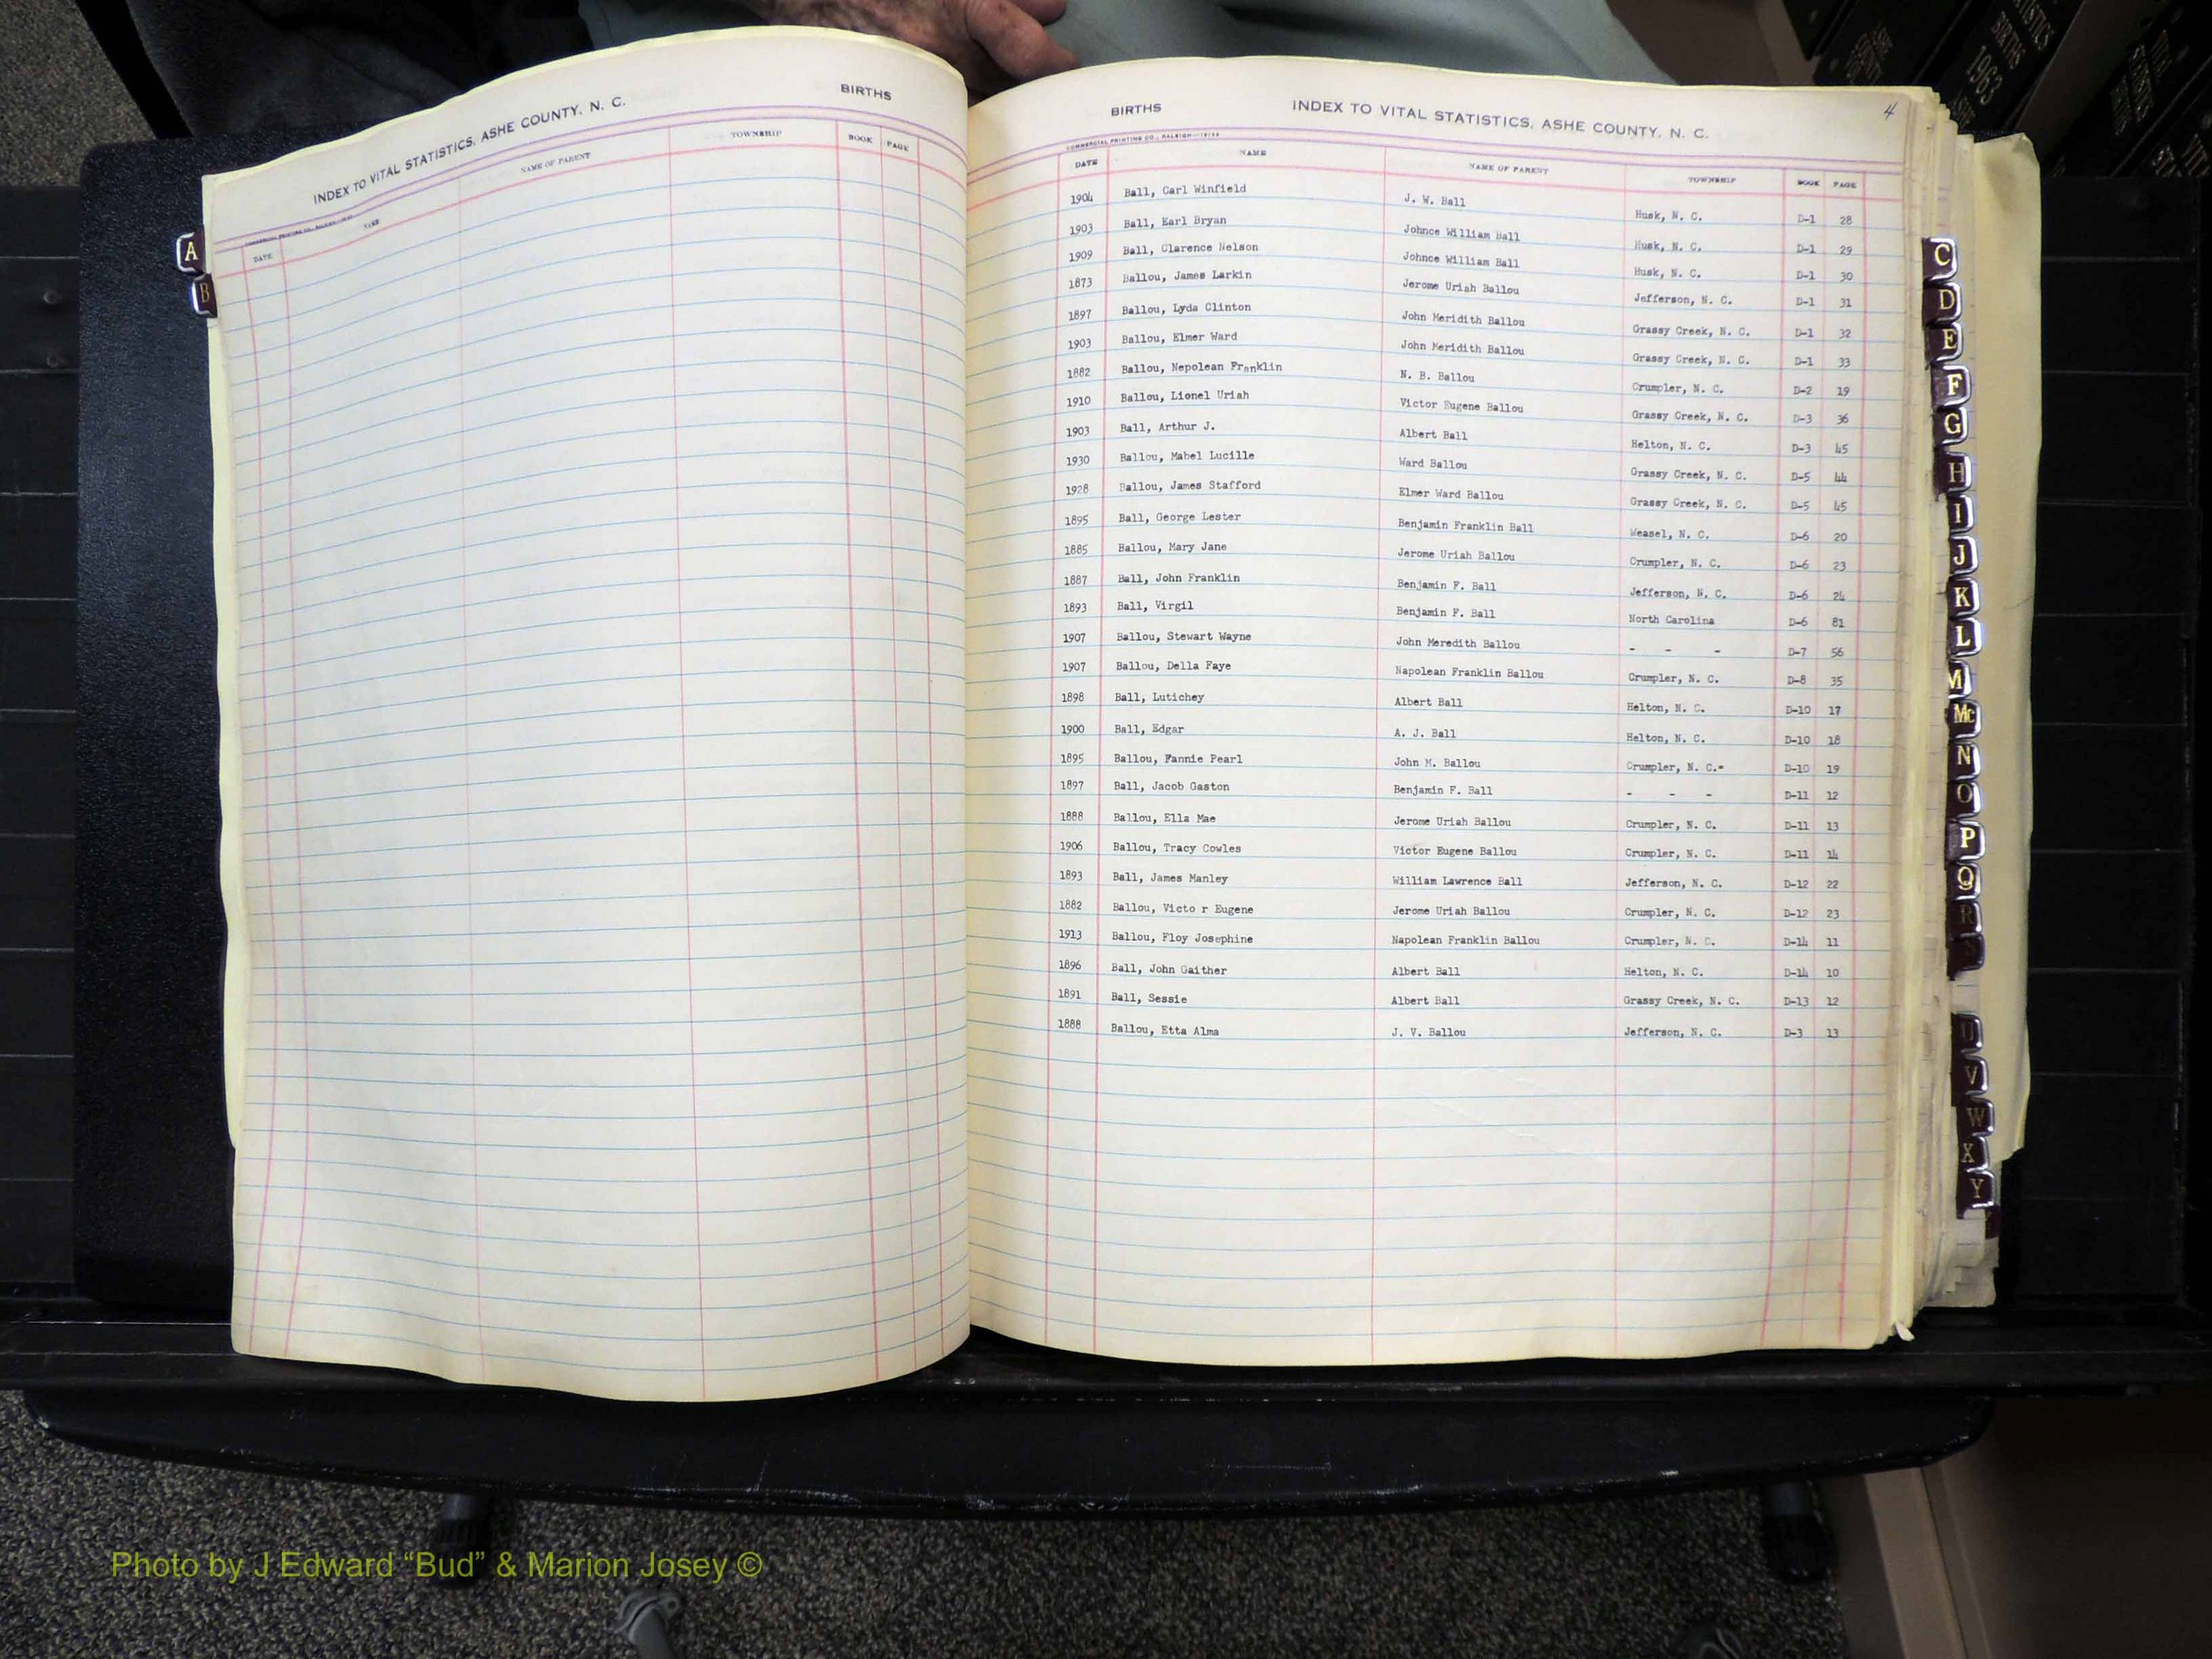 INDEX TO VITAL STATISTICS, ASHE COUNTY, N. C. BIRTHS
DATE NAME NAME OF PARENT TOWNSHIP BOOK PAGE
A
B
4
BIRTHS INDEX TO VITAL STATISTICS, ASHE COUNTY, N. C.
COMMERCIAL PRINTING CO., RALEIGH
DATE NAME NAME OF PARENT TOWNSHIP BOOK PAGE
1904 Ball, Carl Winfield J. W. Ball Husk, N. C. D-1 28
1903 Ball, Earl Bryan Johnce William Ball Husk, N. C. D-1 29
1909 Ball, Clarence Nelson Johnce William Ball Husk, N. C. D-1 30
1873 Ballou, James Larkin Jerome Uriah Ballou Jefferson, N. C. D-1 31
1897 Ballou, Lyda Clinton John Meridith Ballou Grassy Creek, N. C. D-1 32
1903 Ballou, Elmer Ward John Meridith Ballou Grassy Creek, N. C. D-1 33
1882 Ballou, Nepolean Franklin N. B. Ballou Crumpler, N. C. D-2 19
1910 Ballou, Lionel Uriah Victor Eugene Ballou Grassy Creek, N. C. D-3 36
1903 Ball, Arthur J. Albert Ball Helton, N. C. D-3 45
1930 Ballou, Mabel Lucille Ward Ballou Grassy Creek, N. C. D-5 44
1928 Ballou, James Stafford Elmer Ward Ballou Grassy Creek, N. C. D-5 45
1895 Ball, George Lester Benjamin Franklin Ball Weasel, N. C. D-6 20
1885 Ballou, Mary Jane Jerome Uriah Ballou Crumpler, N. C. D-6 23
1887 Ball, John Franklin Benjamin F. Ball Jefferson, N. C. D-6 24
1893 Ball, Virgil Benjamin F. Ball North Carolina D-6 81
1907 Ballou, Stewart Wayne John Meredith Ballou - - - D-7 56
1907 Ballou, Della Faye Napolean Franklin Ballou Crumpler, N. C. D-8 35
1898 Ball, Lutichey Albert Ball Helton, N. C. D-10 17
1900 Ball, Edgar A. J. Ball Helton, N. C. D-10 18
1895 Ballou, Fannie Pearl John M. Ballou Crumpler, N. C.- D-10 19
1897 Ball, Jacob Gaston Benjamin F. Ball - - - D-11 12
1888 Ballou, Ella Mae Jerome Uriah Ballou Crumpler, N. C. D-11 13
1906 Ballou, Tracy Cowles Victor Eugene Ballou Crumpler, N. C. D-11 14
1893 Ball, James Manley William Lawrence Ball Jefferson, N. C. D-12 22
1882 Ballou, Victo r Eugene Jerome Uriah Ballou Crumpler, N. C. D-12 23
1913 Ballou, Floy Josephine Napolean Franklin Ballou Crumpler, N. C. D-14 11
1896 Ball, John Gaither Albert Ball Helton, N. C. D-14 10
1891 Ball, Sessie Albert Ball Grassy Creek, N. C. D-13 12
1888 Ballou, Etta Alma J. V. Ballou Jefferson, N. C. D-3 13
C
D
E
F
G
H
I
J
K
L
M
Mc
N
O
P
Q
R
S
U
V
W
X
Y
BIRTHS
1963
Photo by J Edward “Bud” & Marion Josey ©